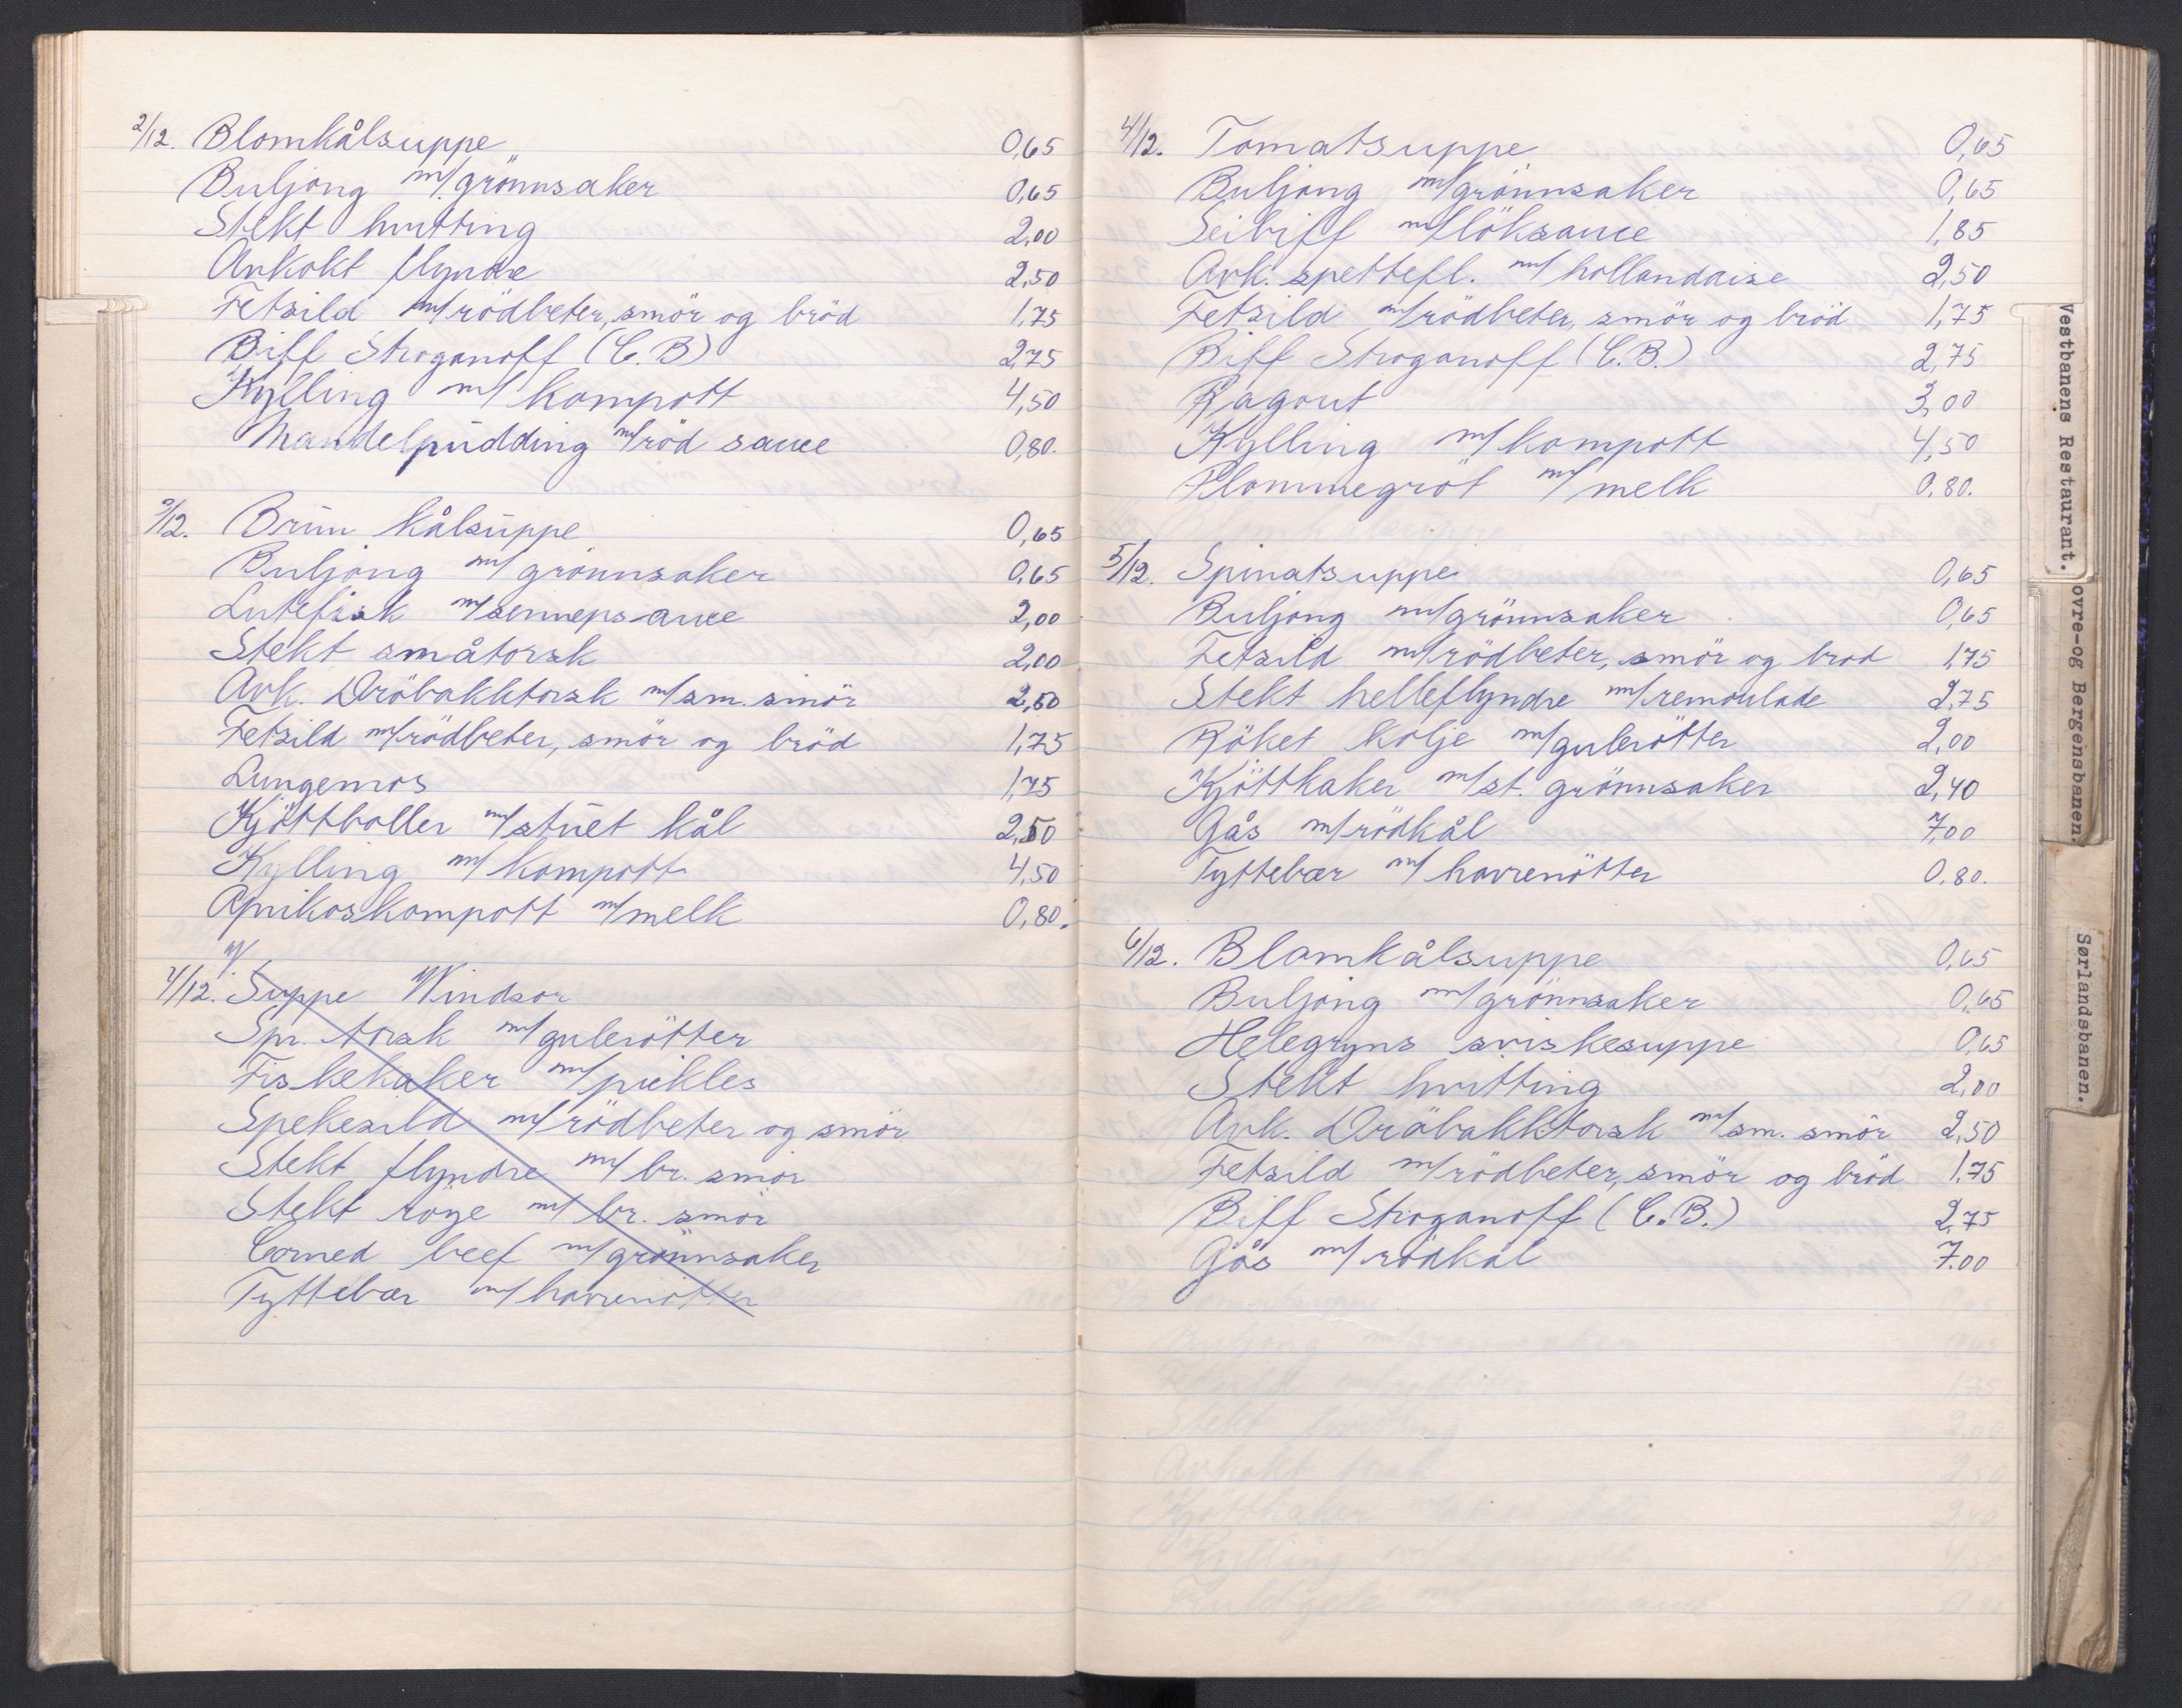 2/12. Blomkålsuppe 0,65
Buljong m/grönnsaker 0,65
Stekt hvitting 2,00
Avkokt flyndre 2,50
Fetsild m/rödbeter, smör og bröd 1,75
Biff Stroganoff (C.B) 2,75
Kylling m/ kompott 4,50
Mandelpudding m/röd sauce 0,80.
3/12. Brun kålsuppe 0,65
Buljong m/ grönnsaker 0,65
Lutefisk m/sennepsauce 2,00
Stekt småtorsk 2,00
Avk. Dröbakktorsk m/sm. smör 2,50
Fetsild m/rödbeter, smör og bröd 1,75
Lungemos 1,75
Kjöttboller m/stuet kål 2,50
Kylling m/ kompott 4,50
Aprikoskompott m/melk 0,80.
4/12. Suppe Windsor
Spr. torsk m/gulerötter
Fiskekaker m/pickles
Spekesild m/rödbeter og smör
Stekt flyndre m/ br. smör
Stekt röye m/ br. smör
Corned beef m/grönnsaker
Tyttebær m/havrenötter
4/12. Tomatsuppe 0,65
Buljong m/grönnsaker 0,65
Seibiff m/löksauce 1,85
Avk. spettefl. m/ hollandaise 2,50
Fetsild m/rödbeter, smör og bröd 1,75
Biff Stroganoff (C.B.) 2,75
Ragout 3,00
Kylling m/kompott 4,50
Plommegröt m/melk 0.80.
5/12. Spinatsuppe 0,65
Buljong m/grönnsaker 0,65
Fetsild m/rödbeter, smör og bröd 1,75
Stekt helleflyndre m/remoulade 2,75
Röket kolje m/gulerötter 2,00
Kjöttkaker m/st. grönnsaker 2,40
Gås m/rödkål 7,00
Tyttebær m/ havrenötter 0.80.
6/12. Blomkålsuppe 0,65
Buljong m/grönnsaker 0,65
Helegryns sviskesuppe 0,65
Stekt hvitting 2,00
Avk. Dröbakktorsk m/sm. smör 2,50
Fetsild m/rödbeter, smör og bröd 1,75
Biff Stroganoff (C.B.) 2,75
Gås m/rödkål 7.00
Vestbanens Restaurant.
ovre-og Bergensbanen.
Sørlandsbanen.